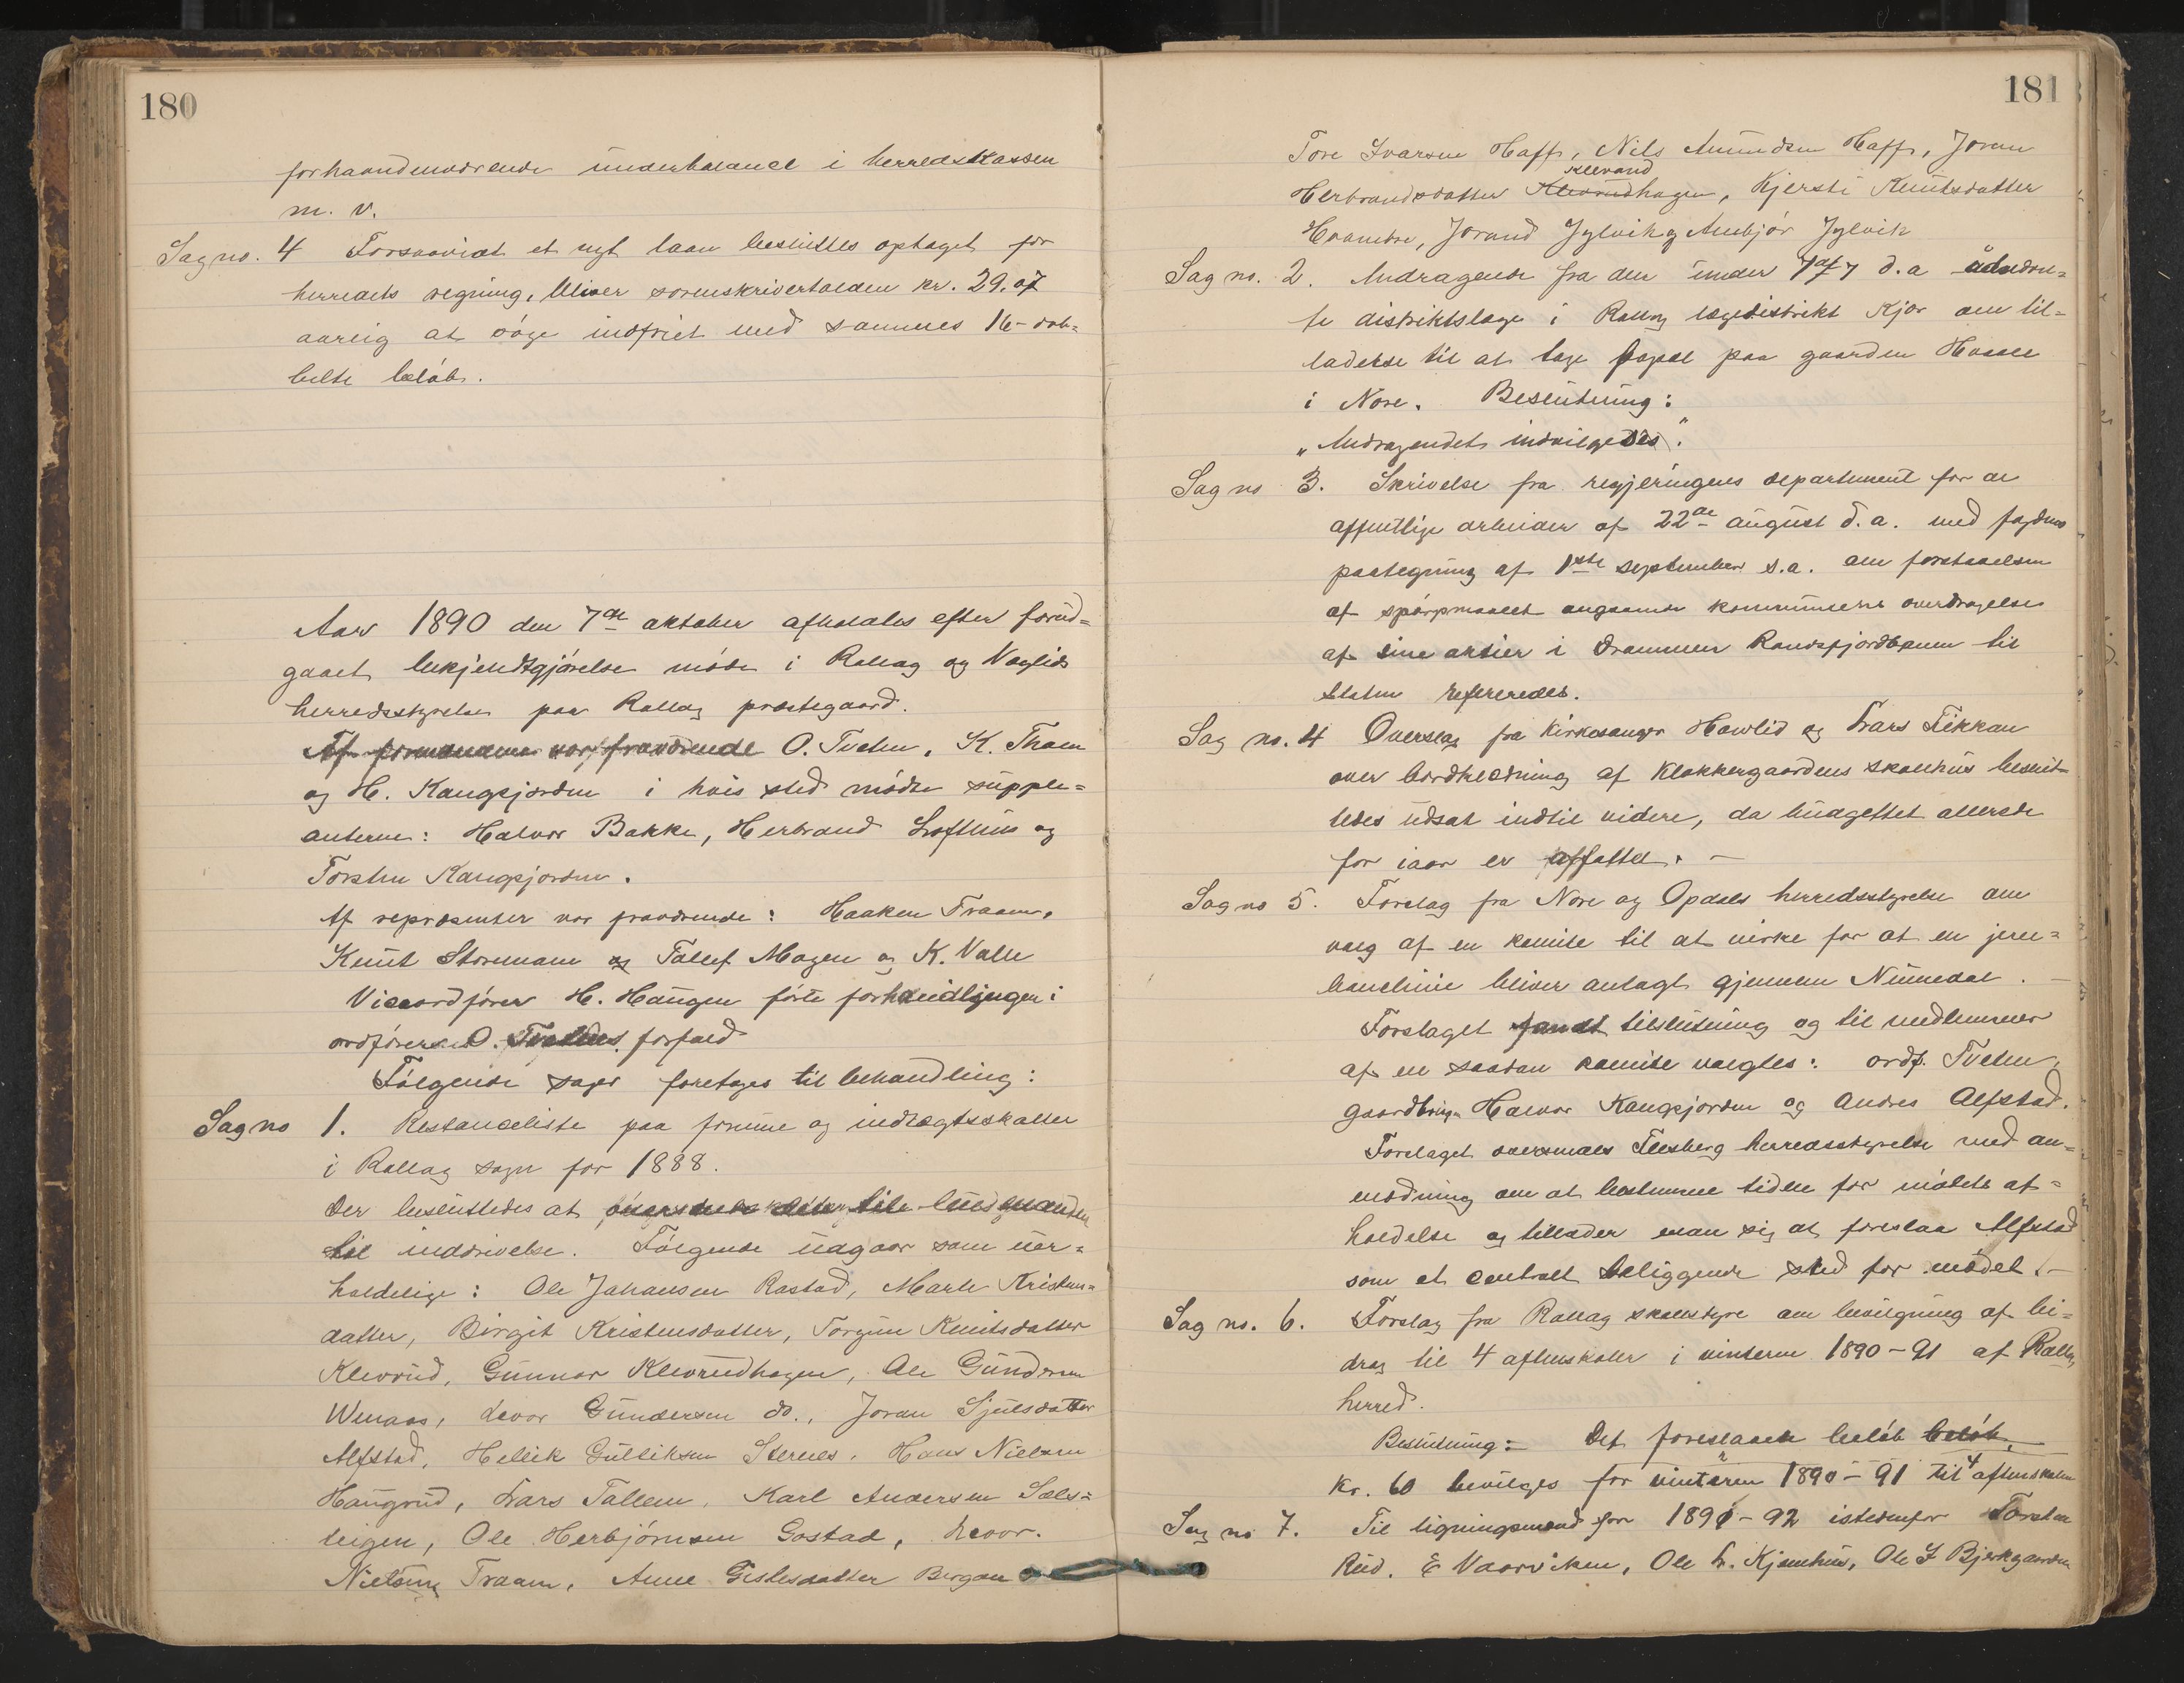 180
forhaandenværende underbalance i herredskassen
m. v.
Sag no. 4 Forsaavidt et nyt laan besluttes optaget for
herredets regning, bliver sorenskrivertolden kr. 29.07
aarlig at søge indfriet med sammes 16-dob=
belte beløb.
Aar 1890 den 7de oktober afholdtes efter forud=
gaaet bekjendtgjørelse møde i Rollag og Veglids
herredsstyrelse paa Rollag prestegaard.
Af formændene var fraværende O. Tveten, K. Traaen
og H. Kangsjorden i hvis sted mødte supple=
anterne: Halvor Bakke, Herbrand Loftuus og
Torsten Kangsjorden.
Af repræsenter var fraværende: Haaken Traaen,
Knut Storemoen og Tollef Mogen og K. Valle
Viceordfører H. Haugen førte forhandlingen i
ordførers O. Tvetens forfald
Følgende sager foretoges til behandling:
Sag no 1. Restanceliste paa formue og indtægtsskatter
i Rollag sogn for 1888.
Der besluttedes at oversende den til lensmanden
til inddrivelse. Følgende udgaar som uer=
holdelige: Ole Johansen Rostad, Marte Kristens=
datter, Birgit Kristensdatter, Torgun Knutsdatter
Klevrud, Gunnar Klevrudhagen, Ole Gundersen
Wenaas, Levor Gundersen do., Joran Sjulsdatter
Alfstad, Hellik Gulliksen Sternes, Hans Nielsen
Haugrud, Lars Tallem, Karl Andersen Sæls=
teigen, Ole Herbjørnsen Gostad, Levor.
Nielsen Traaen, Anne Gislesdatter Bergan
181
Tore Ivarsen Haff, Nils Amundsen Haff, Joran
Klevrud
Herbrandsdatter Klevrudhagen, Kjersti Knutsdatter
Hvambre, Jorand Jylvik og Anbjør Jylvik
Sag no. 2. Andragende fra den under 7de/7 d.a udnævn=
te distriktslæge i Rollag lægedistrikt Kjær om til=
ladelse til at tage bopæl paa gaarden Hvaale
i Nore. Beslutning:
"Andragendet indvilgedes".
Sag no 3. Skrivelse fra regjeringens departement for de
offentlige arbeider af 22de august d.a. med fogdens
paategning af 1ste september s.a. om forstaaelsen
af spørgsmaalet angaaende kommunens overdragelse
af sine aktier i Drammen Randsfjordbanen til
staten refereredes.
Sag no. 4 Overslag fra kirkesanger Hawlid og Lars Fikkan
over bordklædning af Klokkergaardens skolehus beslut=
tedes udsat indtil videre, da budgettet allerede
for iaar er affattet. –
Sag no 5. Forslag fra Nore og Opdals herredsstyrelse om
valg af en komite til at virke for at en jern=
banelinie bliver anlagt gjennem Numedal. –
Forslaget fandt tilslutning og til medlemmer
af en saadan komite valgtes: ordf. Tveten,
gaardbrug. Halvor Kangsjorden og Andres Alfstad.
Forslaget oversendes Flesberg herredsstyrelse med an=
modning om at bestemme tiden for mødets af=
holdelse og tillader man sig at foreslaa Alfstad
som et centralt beliggende sted for mødet. –
Sag no. 6. Forslag fra Rollag skolestyre om bevilgning af bi=
drag til 4 aftenskoler i vinteren 1890–91 af Rollag
herred.
Beslutning: – Det foreslaaede beløb beløb
kr. 60 bevilges for vinteren 1890–91 til 4 aftenskoler
Sag no 7. Til ligningsmænd for 1891–92 istedenfor Torsten
Rud, E Vaarviken, Ole L. Kjemhus, Ole T Bjerkgaarden